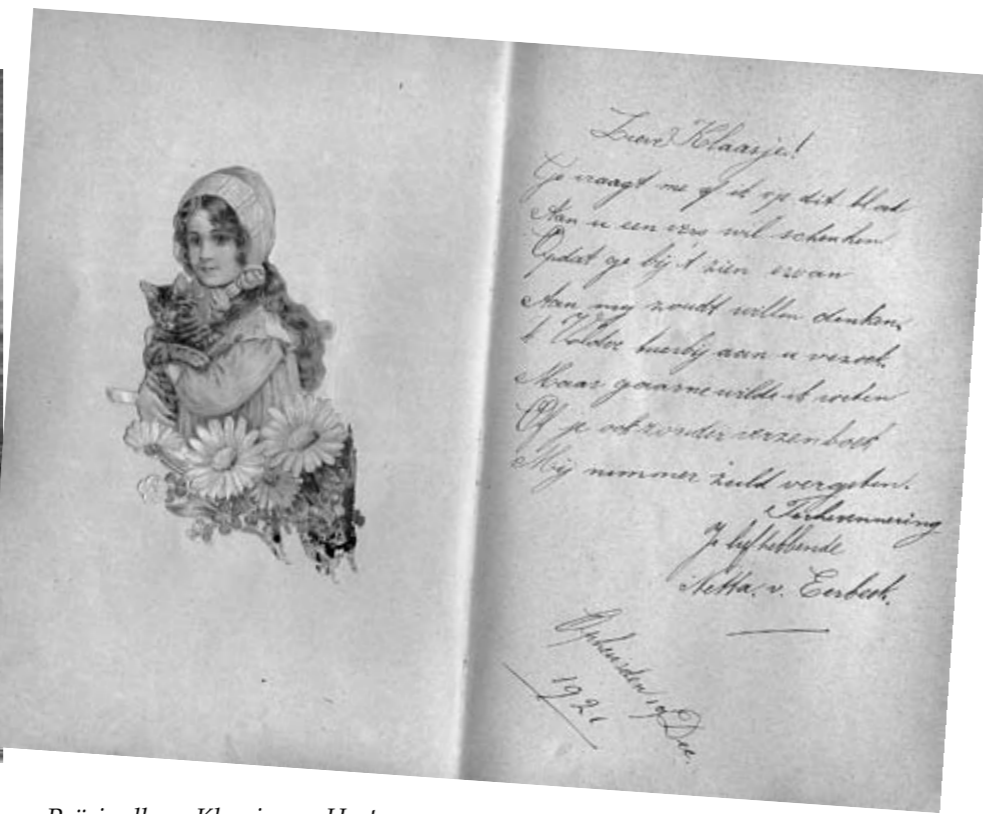 Lieve Klaasje!
Je vraagt me of ik op dit blad
Aan u een vers wil schenken
Opdat ge bij 't zien ervan
Aan my zoudt willen denken,
'k Voldoe hierbij aan u verzoek.
Maar gaarne wilde ik weten
Of je ook zonder verzenboek
Mij nimmer zuld vergeten.
Ter herinnering
Je liefhebbende
Netta. v. Eerbeek.
Opheusden 19 Dec.